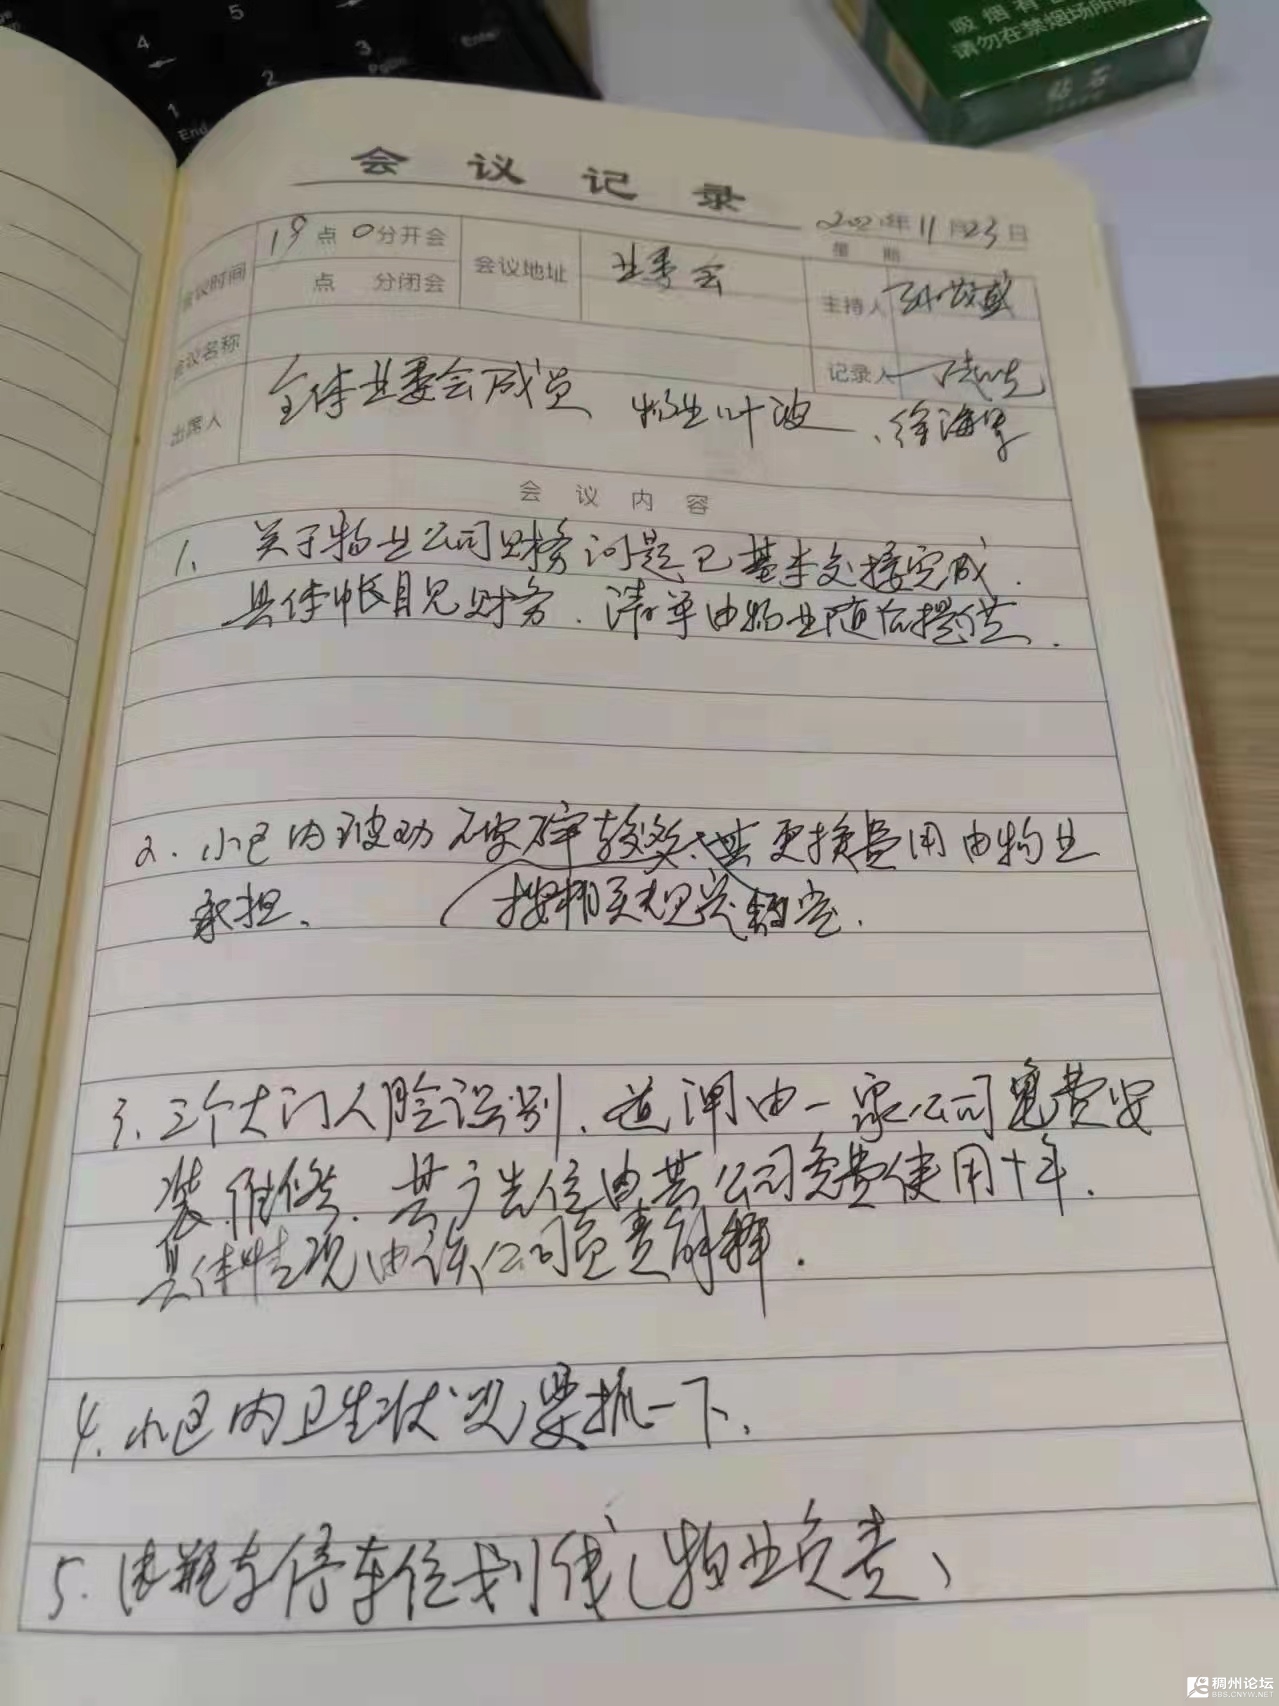 5
4
3
PgDn
Enter
2
1
End
吸烟有
请勿在禁烟场所吸
钻石
会议记录
2021年11月23日
星期
会议时间 19点0分开会
点 分闭会
会议地址 业委会
主持人
会议名称
记录人
出席人 全体业委会成员 物业叶波、徐海
会议内容
1. 关于物业公司财务问题已基本交接完成.
具体帐目见财务.清单由物业随后提供.
2. 小区内玻动 较多、其更换费用由物业
承担. (按相关规定
3. 三个大门人脸识别、道闸由一家公司免费安
装.维修.其广告位由其公司免费使用十年.
具体情况由该公司负责解释.
4. 小区内卫生状况要抓一下.
5. 电瓶车停车位划线(物业负责)
稠州论坛
BBS.CNYW.NET